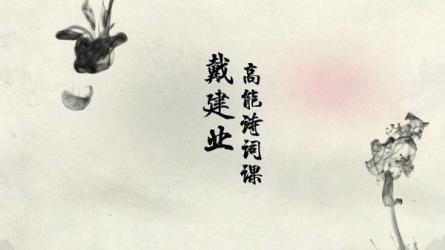 戴建业
高能诗词课